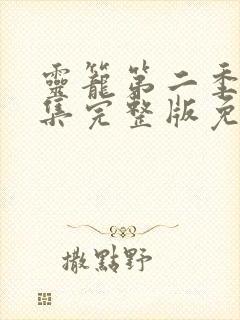 靈籠第二季
集完整版免
撒點野